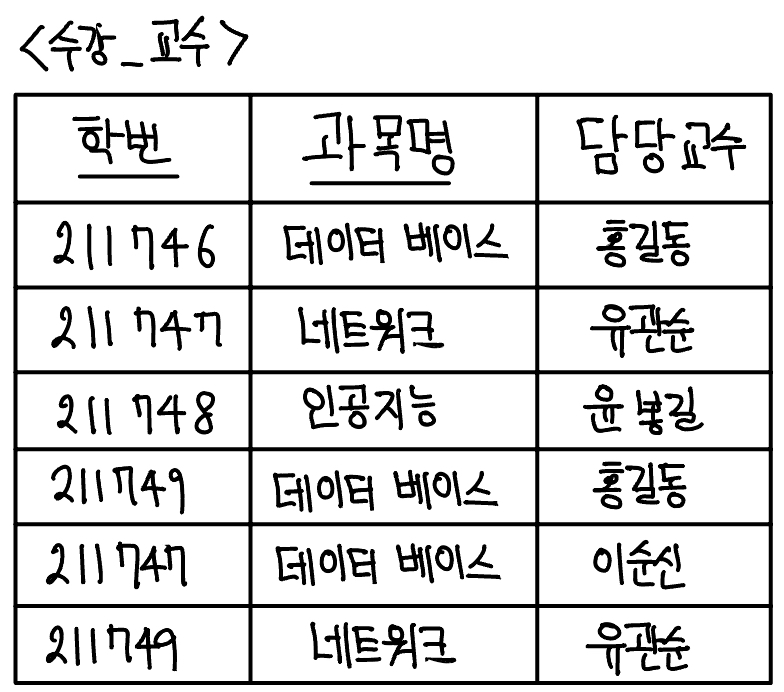 <수강_교수>
학번 과목명 담당교수
211746 데이터 베이스 홍길동
211747 네트워크 유관순
211748 인공지능 윤봉길
211749 데이터 베이스 홍길동
211747 데이터 베이스 이순신
211749 네트워크 유관순